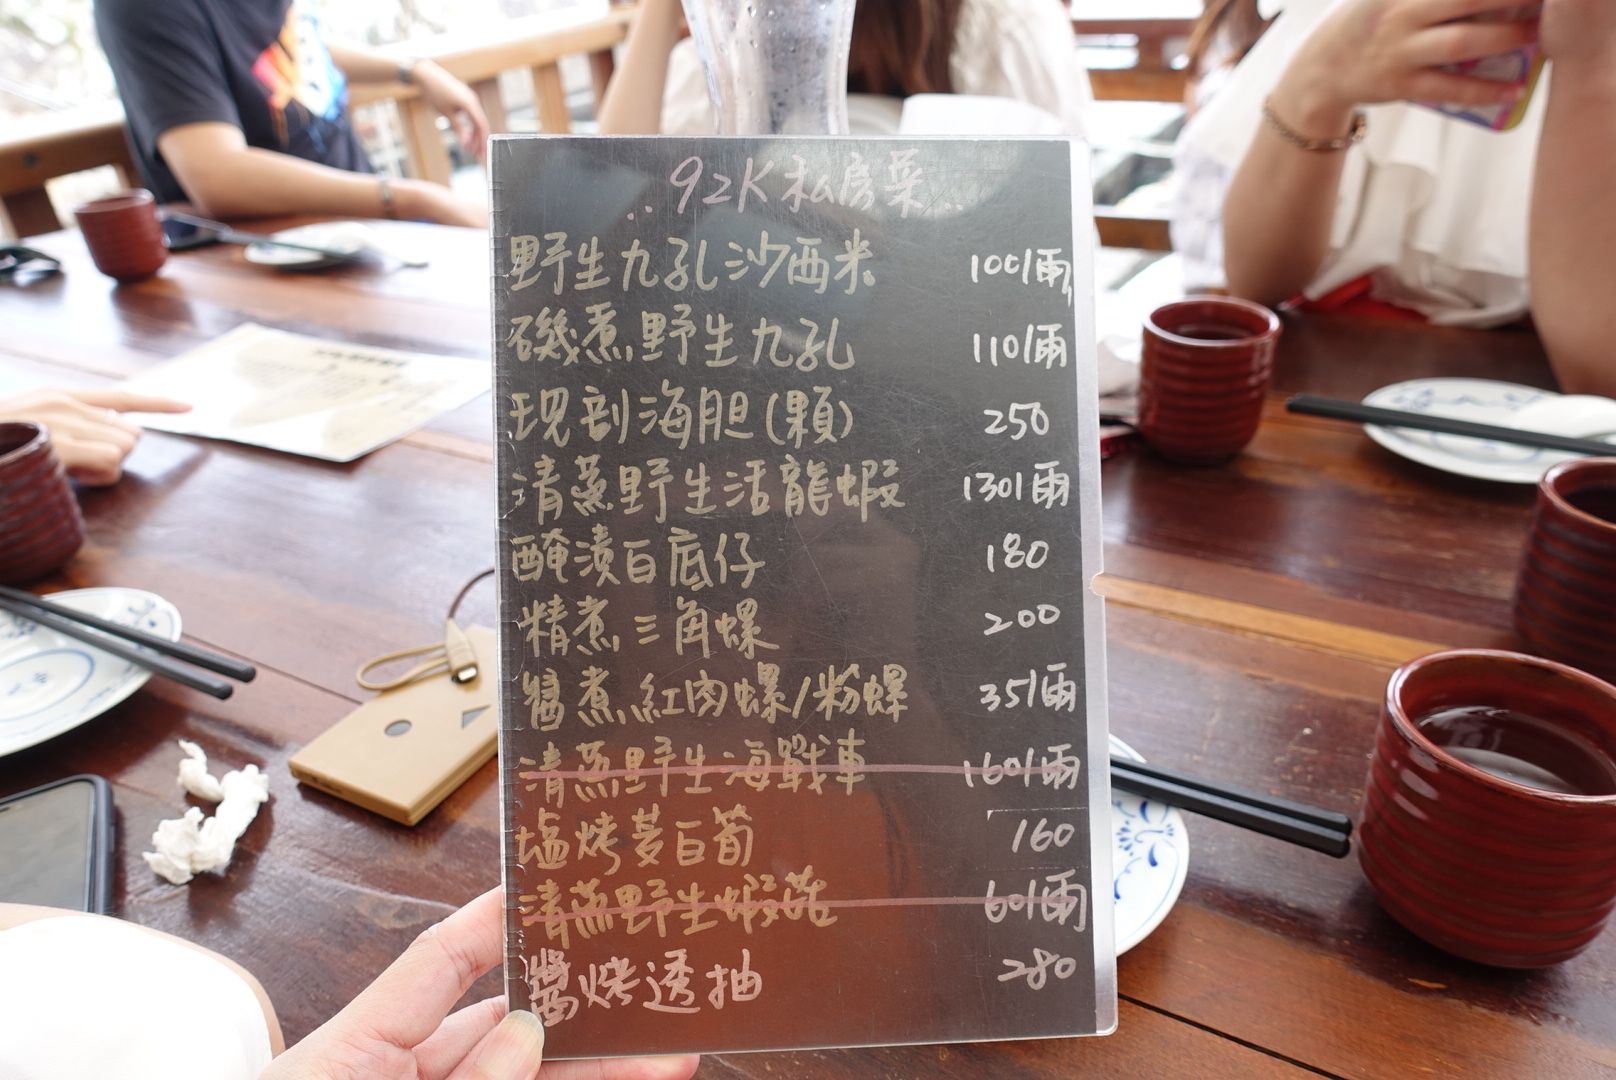 ..92K私房菜..
野生九孔沙西米 100/兩
磯煮野生九孔 110/兩
現剖海胆(顆) 250
清蒸野生活龍蝦 130/兩
醃漬白底仔 180
精煮三角螺 200
醬煮紅肉螺/粉螺 35/兩
清蒸野生海戰車 160/兩
塩烤茭白筍 160
清蒸野生蝦菇 60/兩
醬烤透抽 280